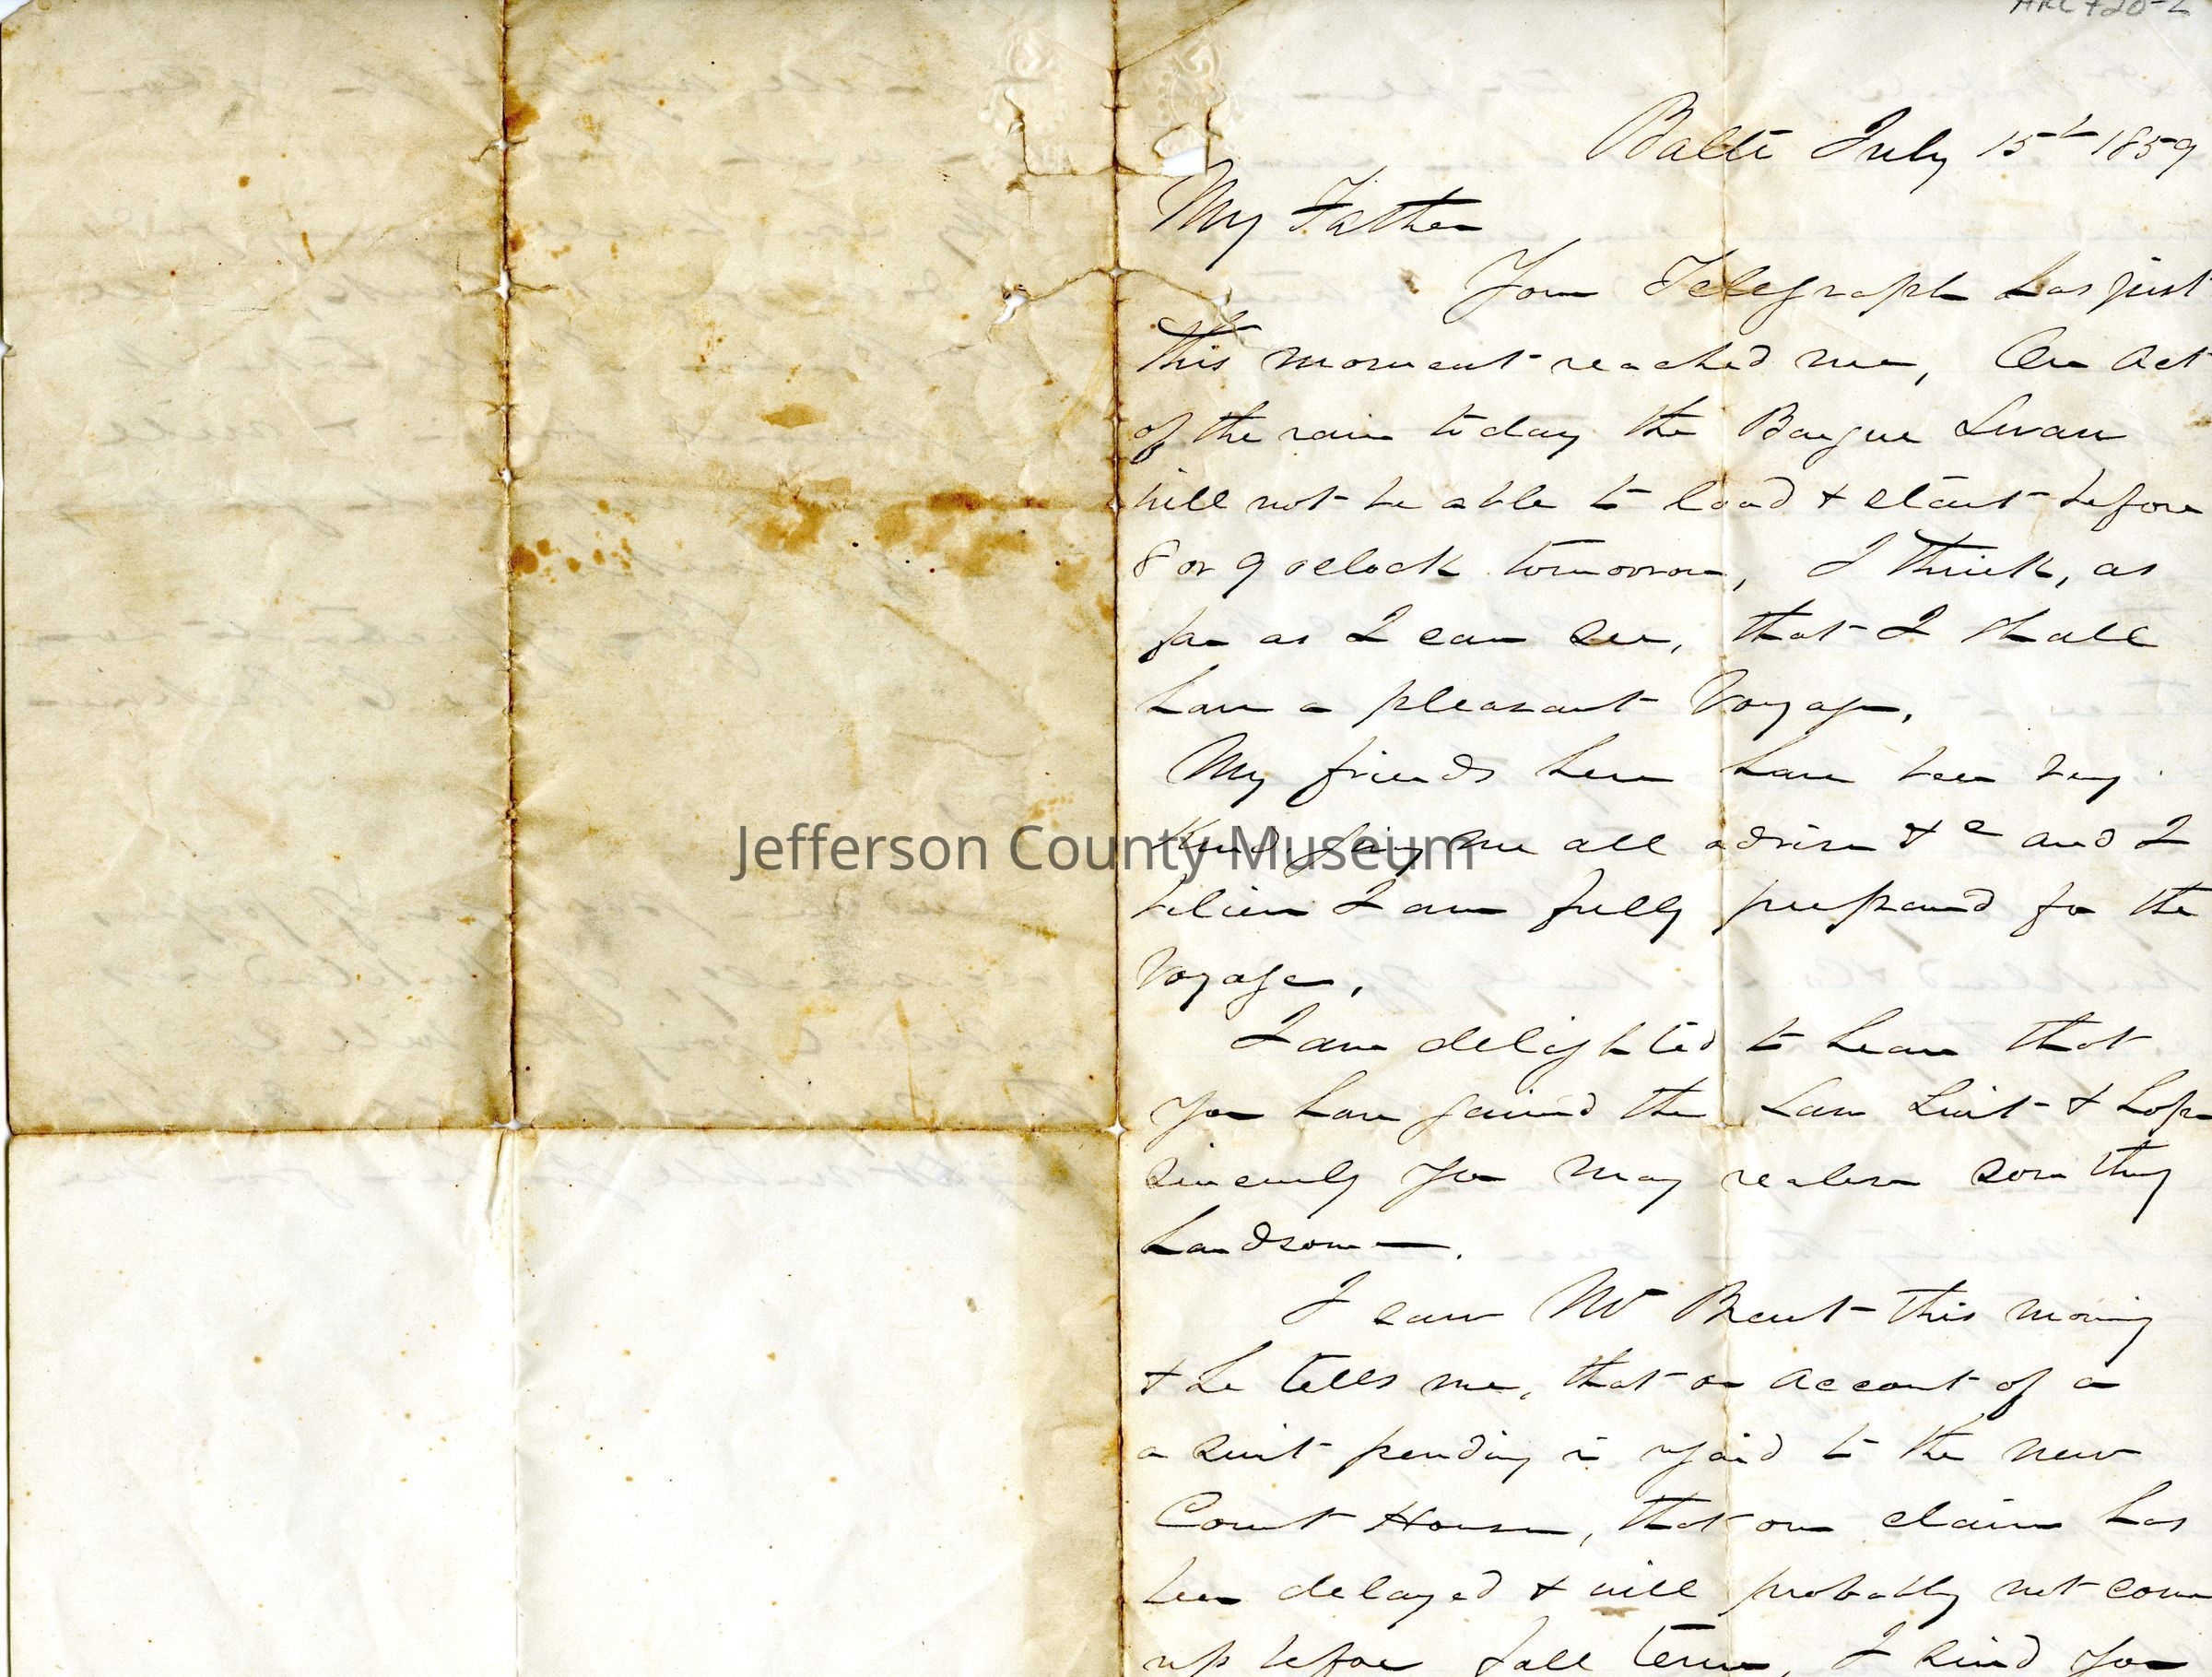 ARC720-2
Balto July 15th 1859
My Father
Your Telegraph has just
this moment reached me, On Act
of the rain today the Barque Swan
will not be able to load & start before
8 or 9 oclock tomorrow, I think, as
far as I can see, that I shall
have a pleasant Voyage,
My friends here have been very
Kind, me all advise &c and I
believe I am fully prepared for the
Voyage,
I am delighted to hear that
you have gained the Law Suit & hope
sincerely you may realise some thing
handsome.
I saw Mr Brent this morning
& he tells me, that on account of a
a suit pending in regard to the new
Court House, that our claim has
been delayed & will probably not come
up before fall term, I send you
Jefferson County Museum